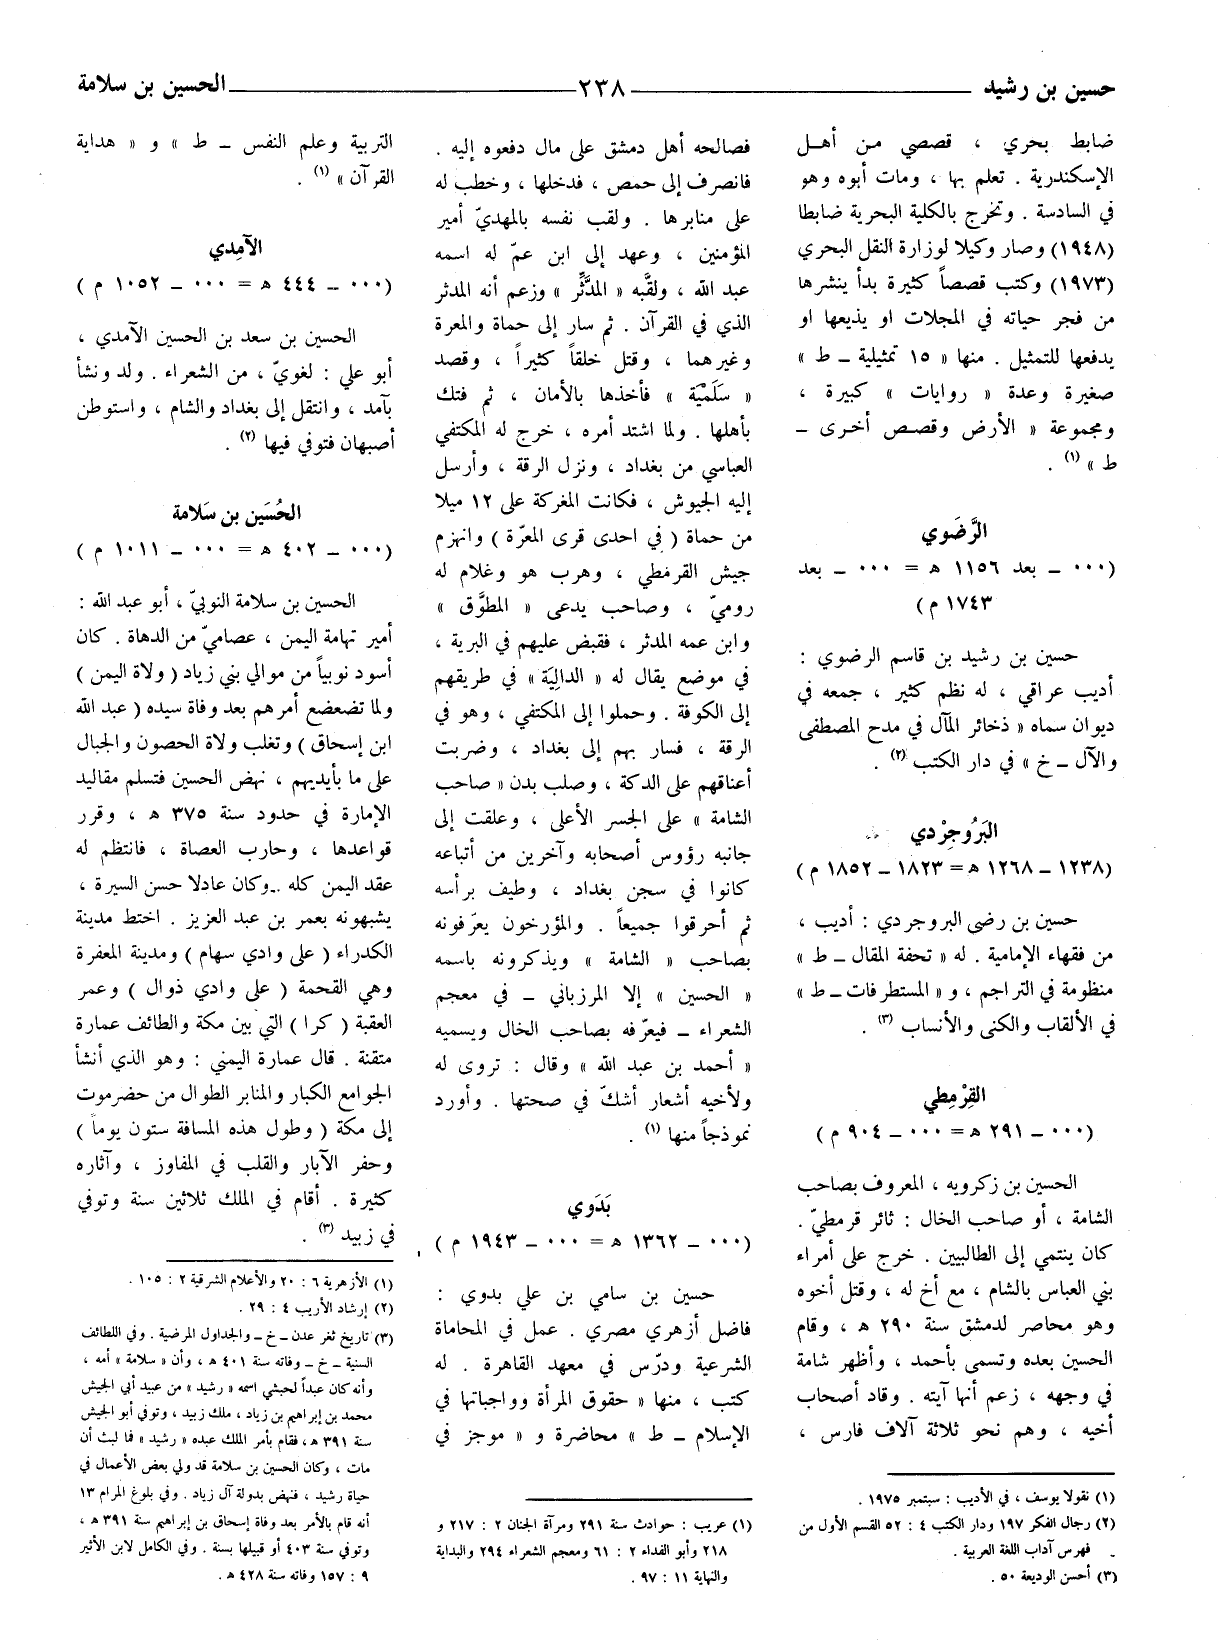 حسين بن رشيد ــــــ ٢٣٨ ــــــ الحسين بن سلامة
ضابط بحري ، قصصي من أهل
الإسكندرية . تعلم بها ، ومات أبوه وهو
في السادسة . وتخرج بالكلية البحرية ضابطا
(١٩٤٨) وصار وكيلا لوزارة النقل البحري
(١٩٧٣) وكتب قصصاً كثيرة بدأ ينشرها
من فجر حياته في المجلات او يذيعها او
يدفعها للتمثيل . منها « ١٥ تمثيلية ـ ط »
صغيرة وعدة « روايات » كبيرة ،
ومجموعة « الأرض وقصص أخرى ـ
ط » (١) .
الرَّضَوي
(٠٠٠ ـ بعد ١١٥٦ ه = ٠٠٠ ـ بعد
١٧٤٣ م)
حسين بن رشيد بن قاسم الرضوي :
أديب عراقي ، له نظم كثير ، جمعه في
ديوان سماه « ذخائر المآل في مدح المصطفى
والآل ـ خ » في دار الكتب (٢) .
البَرُوجِرْدي
(١٢٣٨ ـ ١٢٦٨ ه = ١٨٢٣ ـ ١٨٥٢ م)
حسين بن رضى البروجردي : أديب ،
من فقهاء الإمامية . له « تحفة المقال ـ ط »
منظومة في التراجم ، و « المستطرفات ـ ط »
في الألقاب والكنى والأنساب (٣) .
القِرْمِطي
(٠٠٠ ـ ٢٩١ ه = ٠٠٠ ـ ٩٠٤ م)
الحسين بن زكرويه ، المعروف بصاحب
الشامة ، أو صاحب الخال : ثائر قرمطيّ .
كان ينتمي إلى الطالبيين . خرج على أمراء
بني العباس بالشام ، مع أخ له ، وقتل أخوه
وهو محاصر لدمشق سنة ٢٩٠ ه ، وقام
الحسين بعده وتسمى بأحمد ، وأظهر شامة
في وجهه ، زعم أنها آيته . وقاد أصحاب
أخيه ، وهم نحو ثلاثة آلاف فارس ،
(١) نقولا يوسف ، في الأديب : سبتمبر ١٩٧٥ .
(٢) رجال الفكر ١٩٧ ودار الكتب ٤ : ٥٢ القسم الأول من
فهرس آداب اللغة العربية .
(٣) أحسن الوديعة ٥٠ .
فصالحه أهل دمشق على مال دفعوه إليه .
فانصرف إلى حمص ، فدخلها ، وخطب له
على منابرها . ولقب نفسه بالمهديّ أمير
المؤمنين ، وعهد إلى ابن عمّ له اسمه
عبد الله ، ولقَّبه « المدَّثِّر » وزعم أنه المدثر
الذي في القرآن . ثم سار إلى حماة والمعرة
وغيرهما ، وقتل خلقاً كثيراً ، وقصد
« سَلَمْيَة » فأخذها بالأمان ، ثم فتك
بأهلها . ولما اشتد أمره ، خرج له المكتفي
العباسي من بغداد ، ونزل الرقة ، وأرسل
إليه الجيوش ، فكانت المغركة على ١٢ ميلا
من حماة ( في احدى قرى المعرّة ) وانهزم
جيش القرمطي ، وهرب هو وغلام له
روميّ ، وصاحب يدعى « المطوَّق »
وابن عمه المدثر ، فقبض عليهم في البرية ،
في موضع يقال له « الدالِيَة » في طريقهم
إلى الكوفة . وحملوا إلى المكتفي ، وهو في
الرقة ، فسار بهم إلى بغداد ، وضربت
أعناقهم على الدكة ، وصلب بدن « صاحب
الشامة » على الجسر الأعلى ، وعلقت إلى
جانبه رؤوس أصحابه وآخرين من أتباعه
كانوا في سجن بغداد ، وطيف برأسه
ثم أحرقوا جميعاً . والمؤرخون يعرّفونه
بصاحب « الشامة » ويذكرونه باسمه
« الحسين » إلا المرزباني ـ في معجم
الشعراء ـ فيعرّفه بصاحب الخال ويسميه
« أحمد بن عبد الله » وقال : تروى له
ولأخيه أشعار أشكّ في صحتها . وأورد
نموذجاً منها (١) .
بَدَوي
(٠٠٠ ـ ١٣٦٢ ه = ٠٠٠ ـ ١٩٤٣ م )
حسين بن سامي بن علي بدوي :
فاضل أزهري مصري . عمل في المحاماة
الشرعية ودرّس في معهد القاهرة . له
كتب ، منها « حقوق المرأة وواجباتها في
الإسلام ـ ط » محاضرة و « موجز في
(١) عريب : حوادث سنة ٢٩١ ومرآة الجنان ٢ : ٢١٧ و
٢١٨ وأبو الفداء ٢ : ٦١ ومعجم الشعراء ٢٩٤ والبداية
والنهاية ١١ : ٩٧ .
التربية وعلم النفس ـ ط » و « هداية
القرآن » (١) .
الآمِدي
(٠٠٠ ـ ٤٤٤ ه = ٠٠٠ ـ ١٠٥٢ م )
الحسين بن سعد بن الحسين الآمدي ،
أبو علي : لغويّ ، من الشعراء . ولد ونشأ
بآمد ، وانتقل إلى بغداد والشام ، واستوطن
أصبهان فتوفي فيها (٢) .
الحُسَين بن سَلامة
(٠٠٠ ـ ٤٠٢ ه = ٠٠٠ ـ ١٠١١ م )
الحسين بن سلامة النوبيّ ، أبو عبد الله :
أمير تهامة اليمن ، عصاميّ من الدهاة . كان
أسود نوبياً من موالي بني زياد ( ولاة اليمن )
ولما تضعضع أمرهم بعد وفاة سيده ( عبد الله
ابن إسحاق ) وتغلب ولاة الحصون والجبال
على ما بأيديهم ، نهض الحسين فتسلم مقاليد
الإمارة في حدود سنة ٣٧٥ ه ، وقرر
قواعدها ، وحارب العصاة ، فانتظم له
عقد اليمن كله . وكان عادلا حسن السيرة ،
يشبهونه بعمر بن عبد العزيز . اختط مدينة
الكدراء ( على وادي سهام ) ومدينة المعفرة
وهي القحمة ( على وادي ذوال ) وعمر
العقبة ( كرا ) التي بين مكة والطائف عمارة
متقنة . قال عمارة اليمني : وهو الذي أنشأ
الجوامع الكبار والمنابر الطوال من حضرموت
إلى مكة ( وطول هذه المسافة ستون يوماً )
وحفر الآبار والقلب في المفاوز ، وآثاره
كثيرة . أقام في الملك ثلاثين سنة وتوفي
في زبيد (٣) .
(١) الأزهرية ٦ : ٢٠ والأعلام الشرقية ٢ : ١٠٥ .
(٢) إرشاد الأريب ٤ : ٢٩ .
(٣) تاريخ ثغر عدن ـ خ ـ والجداول المرضية . وفي اللطائف
السنية ـ خ ـ وفاته سنة ٤٠١ ه ، وأن « سلامة » أمه ،
وأنه كان عبداً لحبشي اسمه « رشيد » من عبيد أبي الجيش
محمد بن إبراهيم بن زياد ، ملك زبيد ، وتوفي أبو الجيش
سنة ٣٩١ ه ، فقام بأمر الملك عبده « رشيد » فما لبث أن
مات ، وكان الحسين بن سلامة قد ولي بعض الأعمال في
حياة رشيد ، فنهض بدولة آل زياد . وفي بلوغ المرام ١٣
أنه قام بالأمر بعد وفاة إسحاق بن إبراهيم سنة ٣٩١ ه ،
وتوفي سنة ٤٠٣ أو قبيلها بسنة . وفي الكامل لابن الأثير
٩ : ١٥٧ وفاته سنة ٤٢٨ ه .